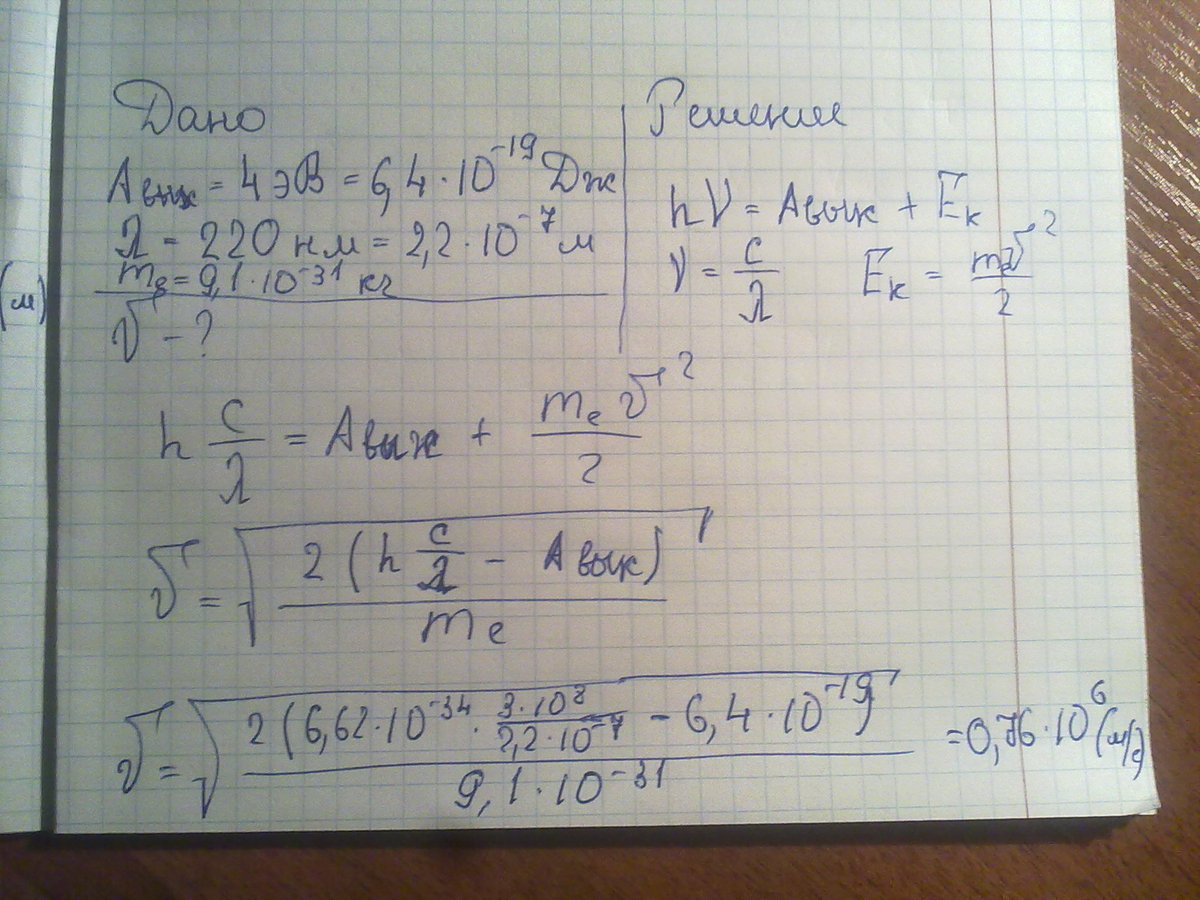 Дано
Aвых = 4 эВ = 6,4·10⁻¹⁹ Дж
λ = 220 нм = 2,2·10⁻⁷ м
mₑ = 9,1·10⁻³¹ кг
v - ?
Решение
hν = Aвых + Eк
ν = c/λ    Eк = mv²/2
(м)
h c/λ = Aвых + mₑv²/2
v = √(2(h c/λ - Aвых)/mₑ)
v = √(2(6,62·10⁻³⁴ · 3·10⁸/2,2·10⁻⁷ - 6,4·10⁻¹⁹)/9,1·10⁻³¹) = 0,76·10⁶ (м/с)